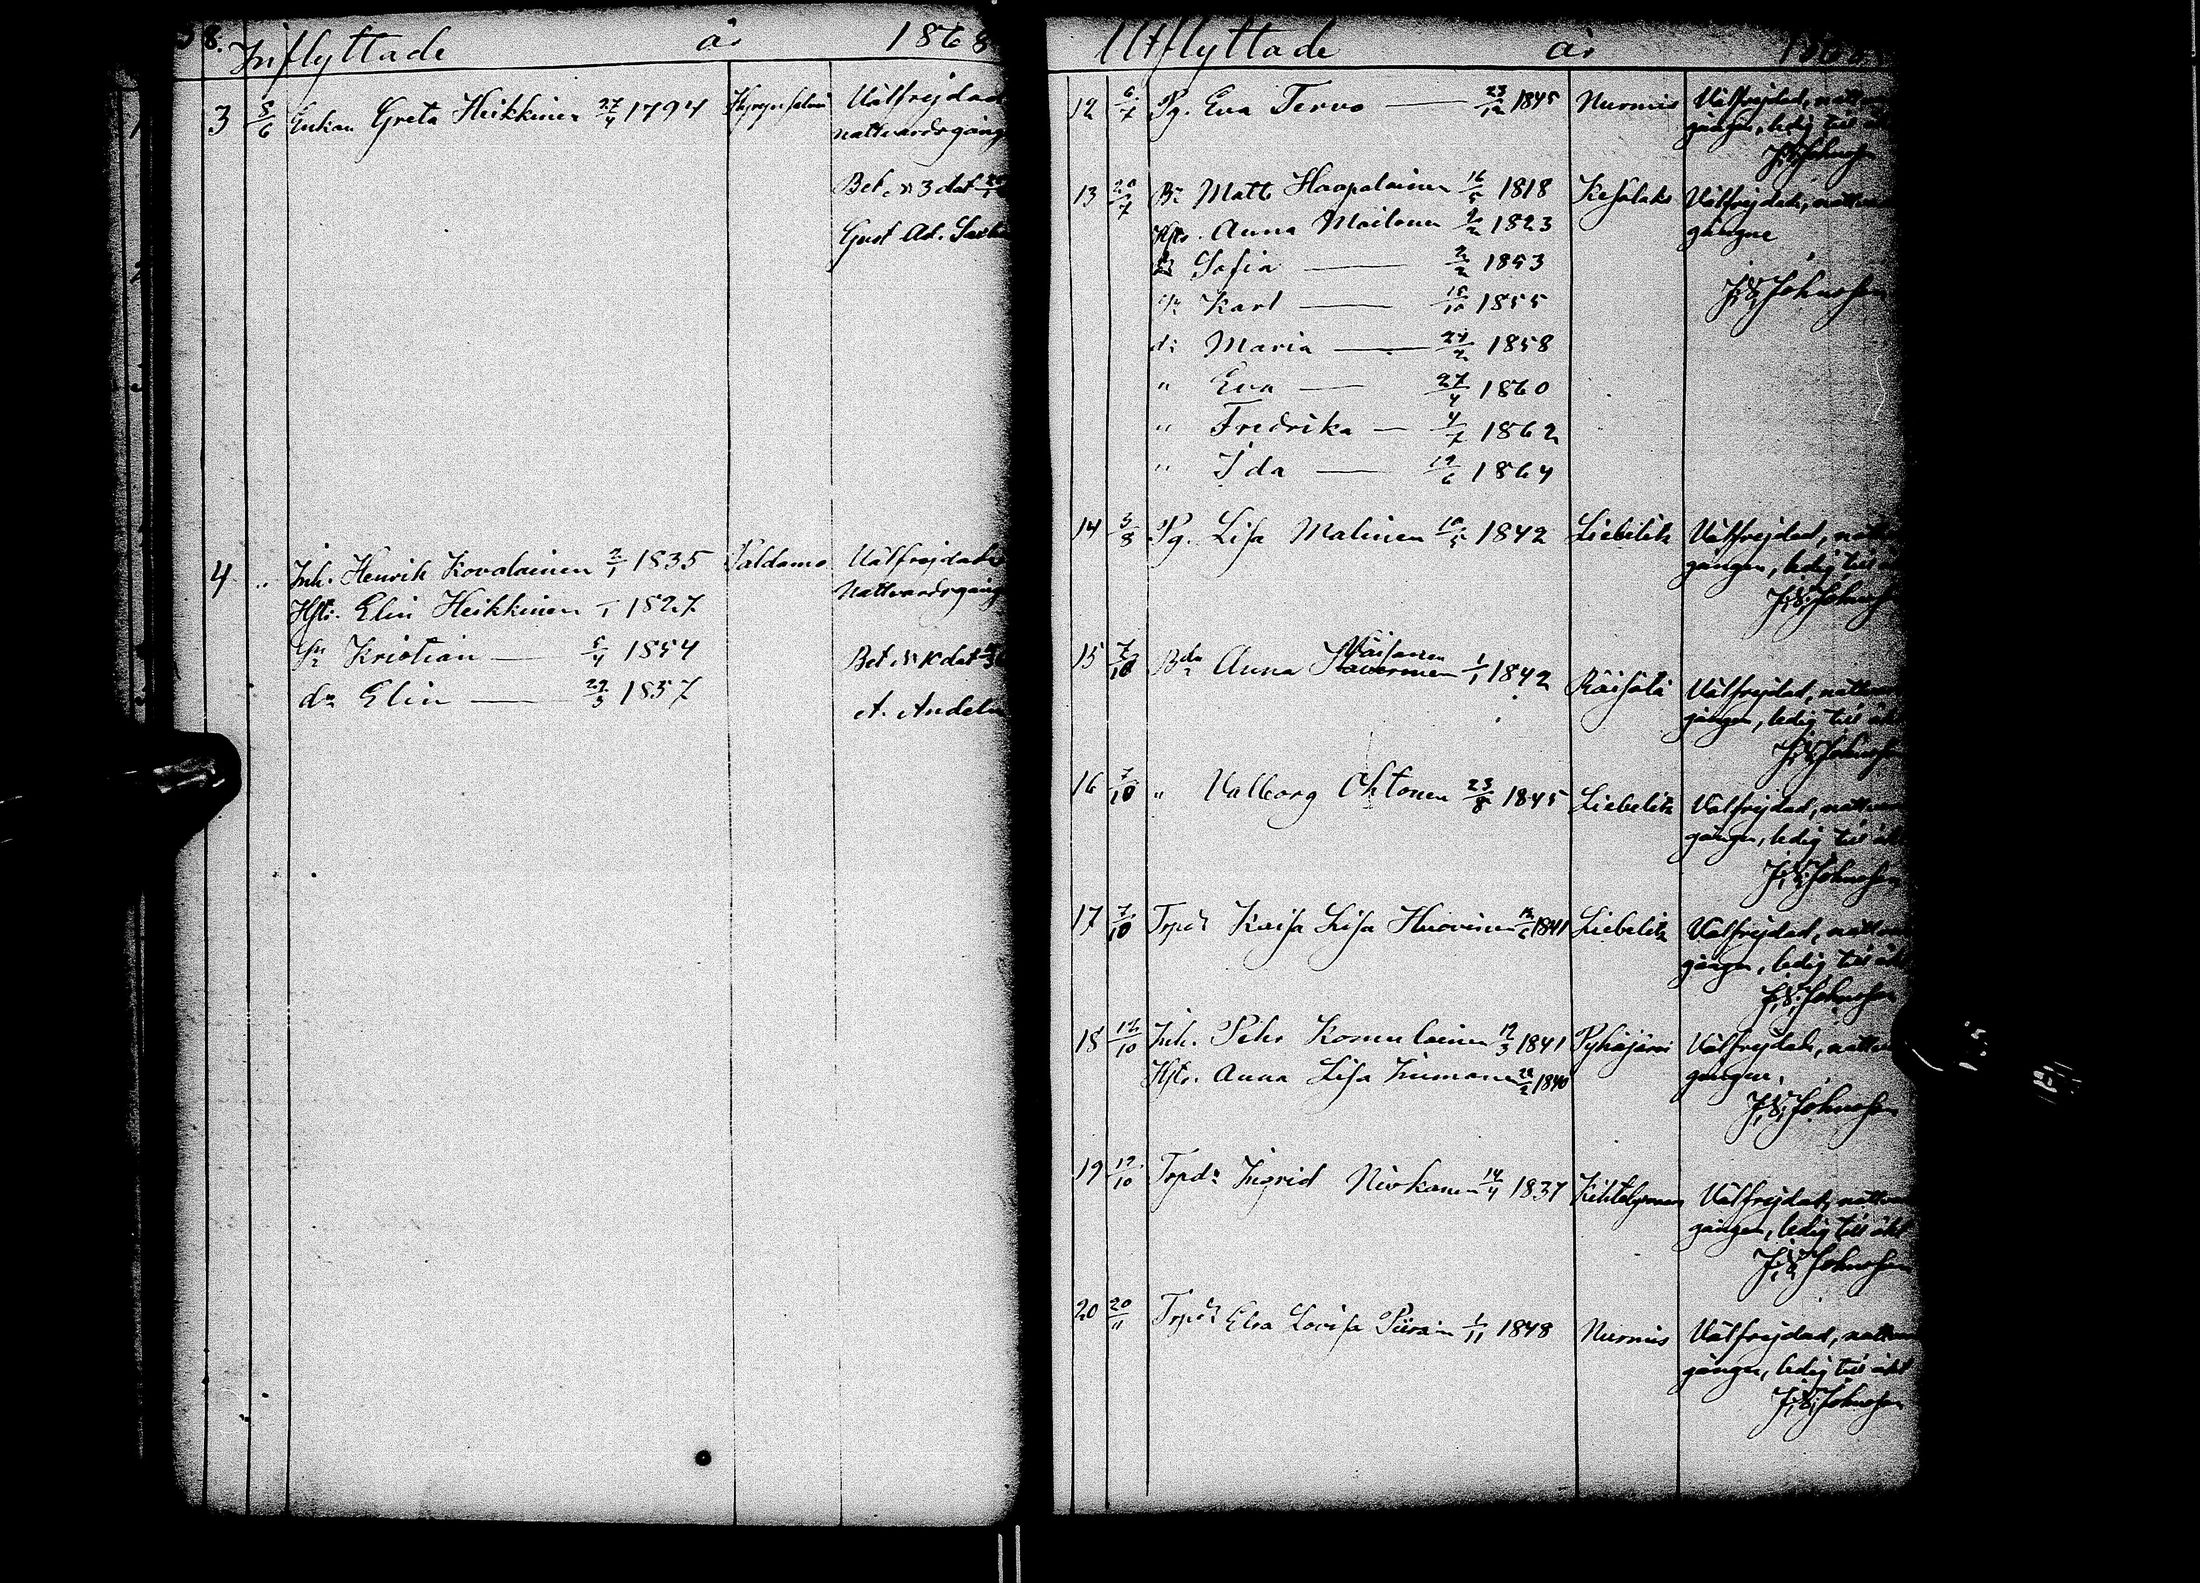 58. Inflyttade år 1868
3 8/6 Enkan Greta Heikkinen 27/4 1794 Hyrynsalmi Välfrejdad
nattvardsgång
Bet. N 3 dat
Gust. Ad.
4 " Inh. Henrik Kovalainen 2/1 1835 Paldamo Välfrejdade
Nattvardsgång
Hstr. Elin Heikkinen 1827
Sn Kristian — 5/4 1854
Bet. N 10 dat
dr Elin — 29/3 1857
A. Andelin
Utflyttade år 1868
12 6/7 Pg. Eva Tervo — 23/12 1845 Nurmis Välfrejdad, nattvard
gången, ledig till äkt
Johnsson
13 20/7 Bn Matts Haapalainen 16/5 1818 Kesälaks Välfrejdade, nattvard
Hstr. Anna Moilanen 2/2 1823 gångne
Sofia — 2/2 1853
Johnsson
Sn Karl — 18/10 1855
dr Maria — 24/2 1858
" Eva — 27/4 1860
" Fredrika — 4/7 1862
" Ida — 19/6 1864
14 3/8 Pg. Lisa Malinen 10/5 1842 Liebelitz Välfrejdad, nattv
gången, ledig till ä
Johnsson
15 7/10 Bdr Anna Väisänen 1/1 1842 Räisälä Välfrejdad, nattvard
gången, ledig till äkt
Johnsson
16 7/10 " Valborg Ohtonen 23/8 1845 Liebelitz Välfrejdad, nattvard
gången, ledig till äkt
Johnsson
17 7/10 Trpdr Kaisa Lisa Huovinen 1841 Liebelitz Välfrejdad, nattvard
gången, ledig till äkt
Johnsson
18 12/10 Inh. Pehr Komulainen 19/3 1841 Pyhäjärvi Välfrejdade, nattvard
Hstr. Anna Lisa Kinnunen 1840 gångne.
Johnsson
19 12/10 Trpdr Ingrid Nivkanen 14/4 1837 Kihtelysvaara Välfrejdad, nattvard
gången, ledig till äkt
Johnsson
20 20/11 Trpdr Elsa Lovisa Piirain 1/11 1848 Nurmis Välfrejdad, nattvard
gången, ledig till äkt
Johnsson